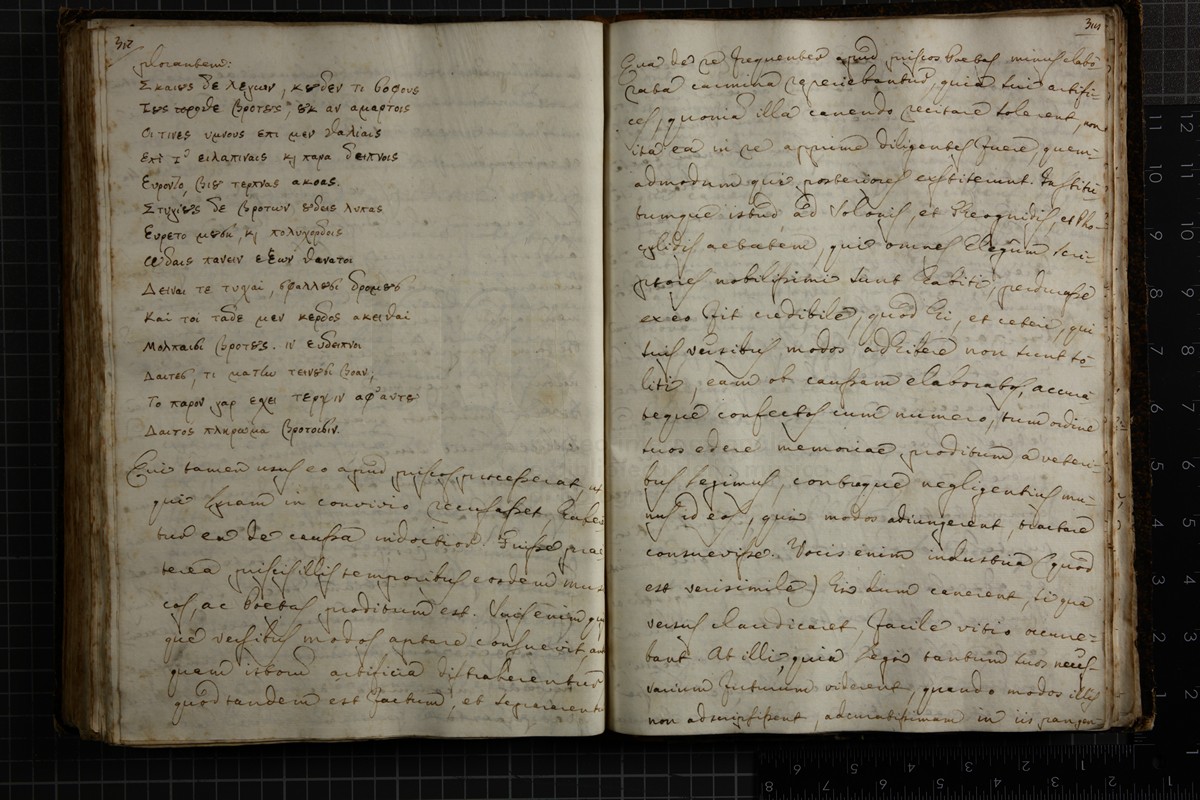 312
plorantem:
Σκαιους δε λεγων, κουδεν τι σοφους
Τους προσθε βροτους, ουκ αν αμαρτοις
Οι τινες υμνους επι μεν θαλιαις
Επι τ' ειλαπιναις κ παρα δειπνοις
Ευροντο, βιου τερπνας ακοας.
Στυγιους δε βροτων ουδεις λυπας
Ευρετο μουση, κ πολυχορδοις
Ωδαις παυειν εξ ων θανατοι
Δειναι τε τυχαι, σφαλλουσι δομους
Και τοι ταδε μεν κερδος ακεισθαι
Μολπαισι βροτους. ιν ευδειπνοι
Δαιτες, τι ματην τεινουσι βοαν;
Το παρον γαρ εχει τερψιν αφ' αυτου
Δαιτος πληρωμα βροτοισιν.
Qui tamen usus eo apud priscos processerat, ut
qui lyram in convivio recusasset, habe
tus ea de caussa indoctior. Fuisse prae
terea priscis illis temporibus eosdem musi
cos, ac Poetas proditum est. Unus enim
que versibus modos aptare consuevit, ante
quam istorum artificia distraherentur
quod tandem est factum, et separarentur
Qua de re frequenter apud priscos Poetas minus elabo
rata carmina reperiebantur, quia sui artifi-
ces, quoniam illa canendo recitare solerent, non
ita ea in re apprime diligentes fuere, quem-
admodum qui posteriores extiterunt. Institu
tumque istud ad Solonis, et Theognidis, et Pho-
cylidis aetatem, qui omnes Elegum scri-
ptores nobilissimi sunt habiti, perdurasse
ex eo fit credibile, quod hi, et ceteri, qui
suis versibus modos adhibere non sunt so-
liti, eam ob caussam elaboratos, accura
teque confectos cum numero, tum ordine
suos edere memoriae proditum a veteri-
bus legimus, contraque negligentius mu-
nus id eos, qui modos adiungerent, tractare
consuevisse. Vocis enim industria (quod
est verisimile) hi dum canerent, si qua
versus claudicaret, facile vitio occurre-
bant. At illi, quia legi tantum suos versus
futurum viderent, quando modos illis
non adscripsissent, adcuratissimam in iis pangen-